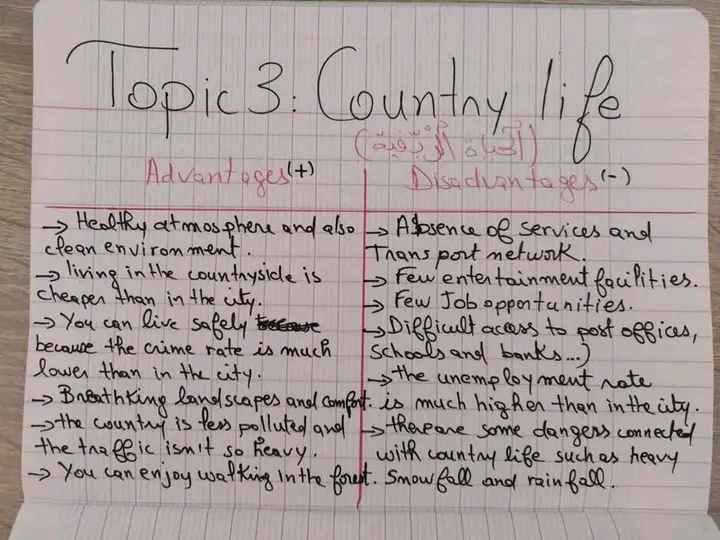 Topic 3: Country life
(الحياة الرّيفية)
Advantages (+)
→ Healthy atmosphere and also
clean environment.
→ living in the countryside is
cheaper than in the city.
→ You can live safely
because the crime rate is much
lower than in the city.
→ Breathking landscapes and comfort.
→ the country is less polluted and
the traffic isn't so heavy.
→ You can enjoy walking in the forest.
Disadvantages (-)
→ Absence of services and
Transport network.
→ Few entertainment facilities.
→ Few Job opportunities.
→ Difficult access to post offices,
schools and banks...)
→ the unemployment rate
is much higher than in the city.
→ there are some dangers connected
with country life such as heavy
snowfall and rainfall.